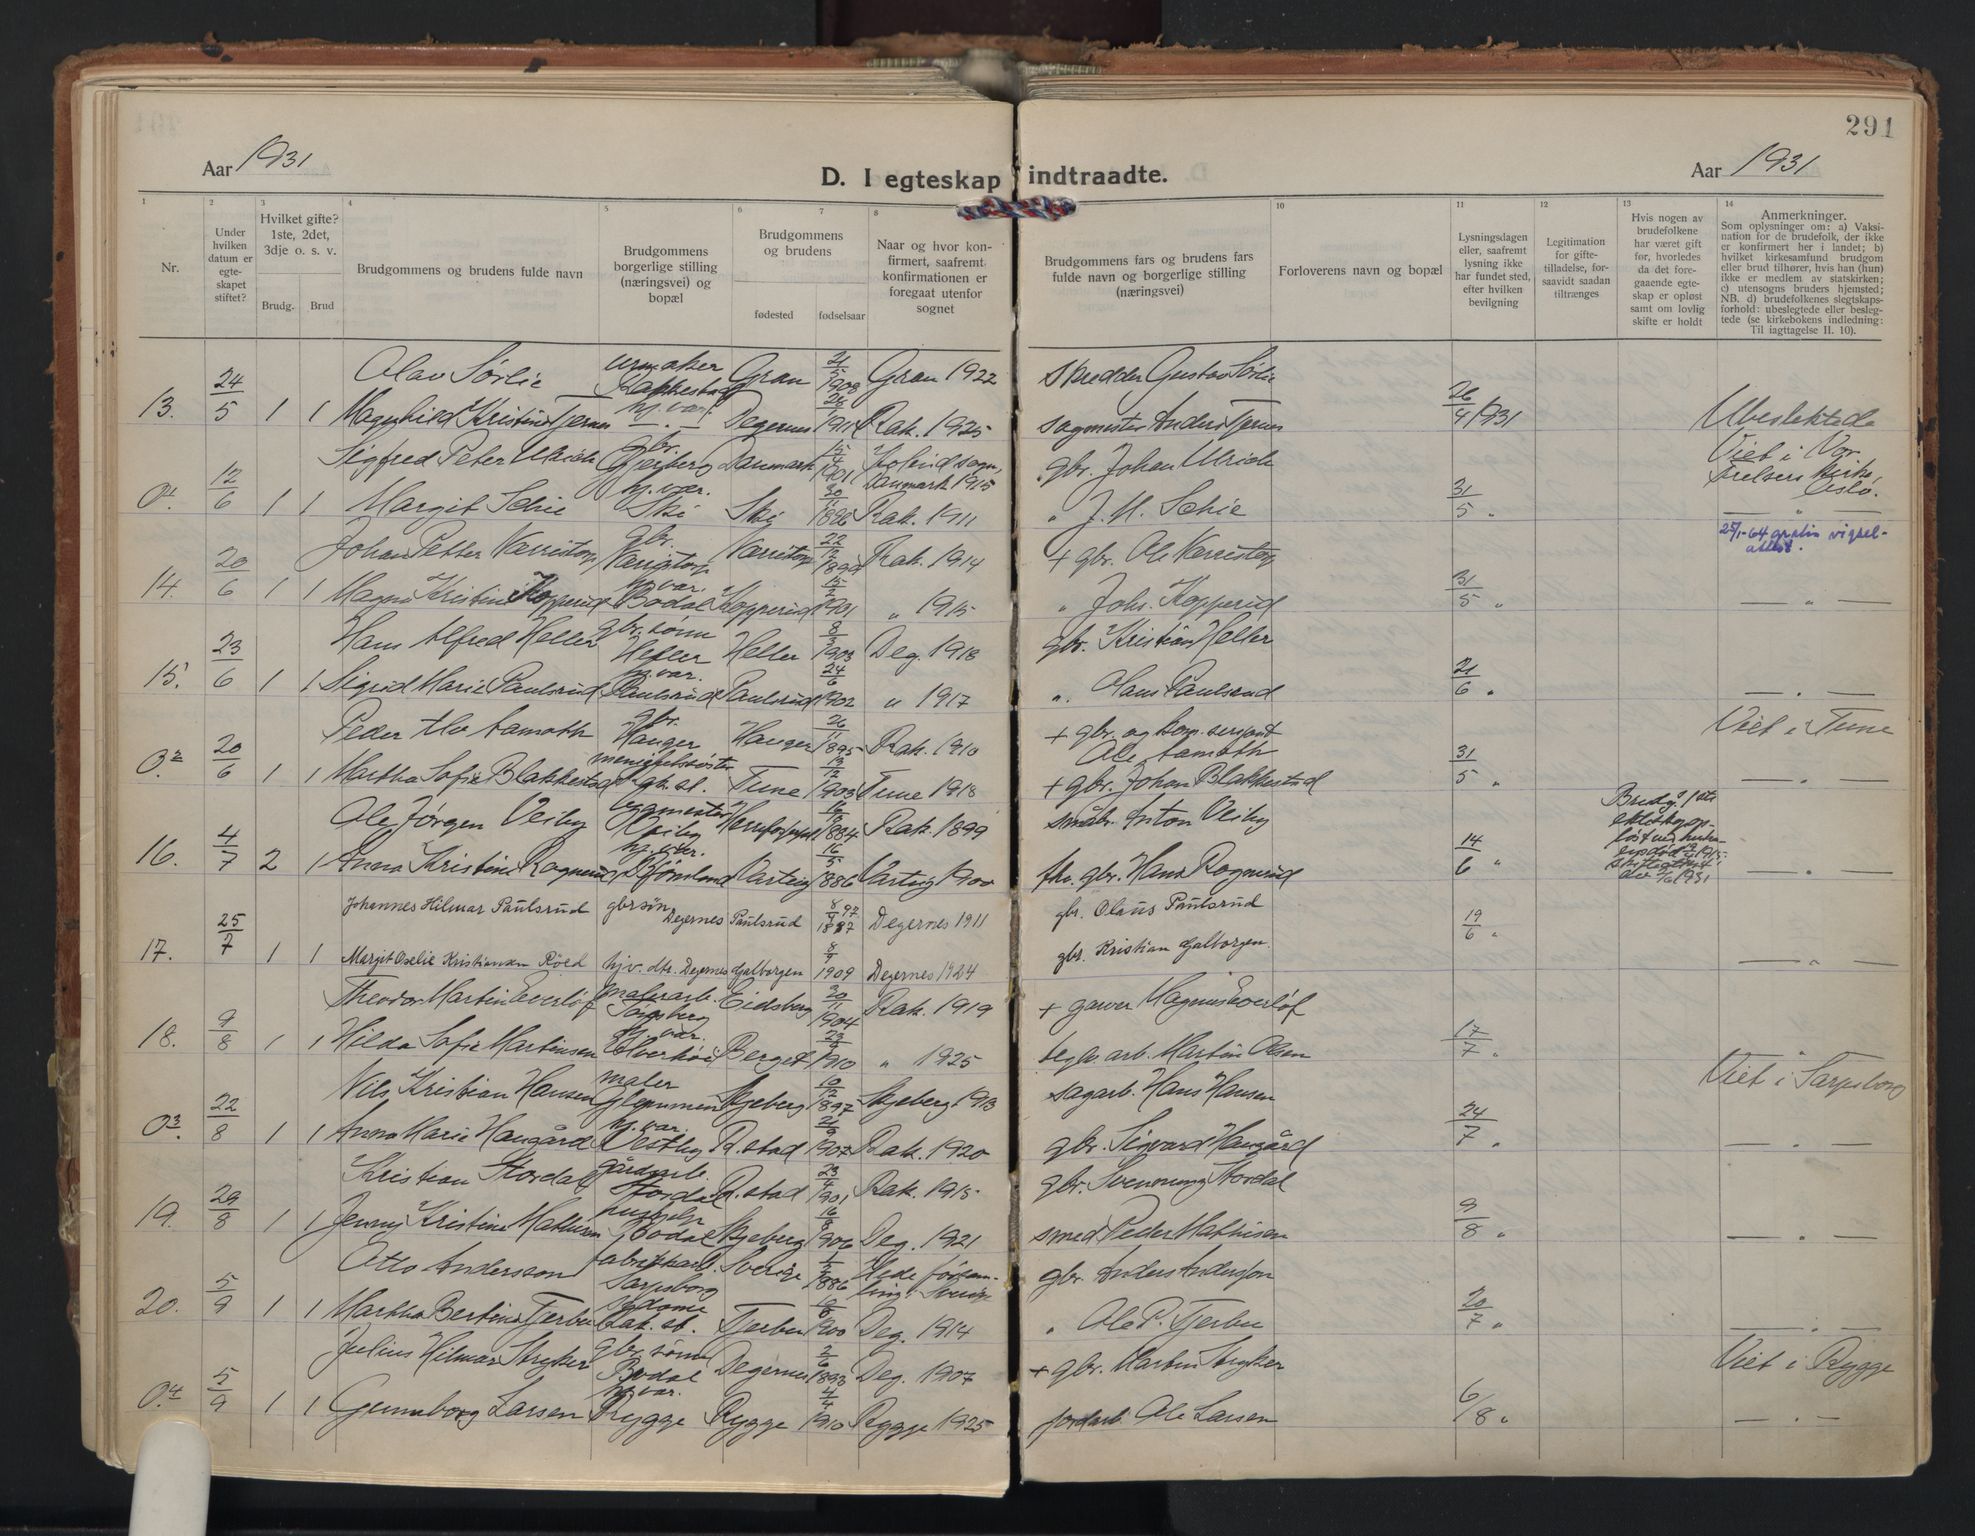 291
Aar 1931
D. I egteskap indtraadte.
Aar 1931
1
Nr.
2
Under hvilken datum er egte-skapet stiftet?
3
Hvilket gifte? 1ste, 2det, 3dje o. s. v.
Brudg. Brud
4
Brudgommens og brudens fulde navn
5
Brudgommens borgerlige stilling (næringsvei) og bopæl
Brudgommens og brudens
6
fødested
7
fødselsaar
8
Naar og hvor kon-firmert, saafremt konfirmationen er foregaat utenfor sognet
Brudgommens fars og brudens fars fulde navn og borgerlige stilling (næringsvei)
10
Forloverens navn og bopæl
11
Lysningsdagen eller, saafremt lysning ikke har fundet sted, efter hvilken bevilgning
12
Legitimation for gifte-tilladelse, for-saavidt saadan tiltrænges
13
Hvis nogen av brudefolkene har været gift før, hvorledes da det fore-gaaende egte-skap er opløst samt om lovlig skifte er holdt
14
Anmerkninger.
Som oplysninger om: a) Vaksi-nation for de brudefolk, der ikke er konfirmert her i landet; b) hvilket kirkesamfund brudgom eller brud tilhører, hvis han (hun) ikke er medlem av statskirken; c) utensogns bruders hjemsted; NB. d) brudefolkenes slegtskaps-forhold: ubeslegtede eller besleg-tede (se kirkebokens indledning: Til iagttagelse II. 10).
Olav Sørlie urmaker Rakkestad Gran 21/5 1908 Gran 1922 skredder Gustav Sørlie
13. 24/5 1 1 Magnhild Kristine Tjernes hj.vær. Degernes 1911 Rak. 1925 sagmester Anders Tjernes 26/4 1931 Ubeslektede
Sigfred Peter Ulrich gbr. Danmark 15/4 1901 sogn, Danmark 1915 gbr. Johan Ulrich Viet i Vor Frelsers kirke, Oslo.
0.1 12/6 1 1 Margit Schie hj.vær. Ski Ski 30/11 1896 Rak. 1911 " J. M. Schie 31/5 " — " —
Johan Petter Værristorp gbr. Værristorp Værristorp 22/12 Rak. 1914 + gbr. Ole Værristorp 25/1-64 gratis vigsel-attest.
14. 20/6 1 1 Magna Kristine Kopperud hj.vær. Bodal Kopperud 15/2 1901 " 1915 " Johs. Kopperud 31/5 " — " —
Hans Alfred Heller gbr. sønn Heller Heller 8/3 1903 Deg. 1918 gbr. Kristian Heller
15. 23/6 1 1 Sigrid Marie Paulsrud hj.vær. Paulsrud Paulsrud 24/6 1902 " 1917 " Olaus Paulsrud 21/6 " — " —
Peder Aamoth gbr. Hauger Hauger 26/11 1895 Rak. 1910 + gbr. og kom. serjant Ole Aamoth Viet i Tune
0.2 20/6 1 1 Martha Sofie Blakkestad menighetssøster Rak. st. Tune 13/12 1903 Tune 1918 + gbr. Johan Blakkestad 31/5 " — " —
Ole Jørgen Veiby bygmester Veiby 1884 Rak. 1899 småbr. Anton Veiby
16. 4/7 2 1 Anna Kristine Rognerud hj.vær. Bjørnland Varteig 16/5 1886 Varteig 1900 fhv. gbr. Hans Rognerud 14/6 " Brudg. 1ste 1931 — " —
Johannes Hilmar Paulsrud gbr søn Degernes Paulsrud 8/7 97 1897 Degernes 1911 gbr. Olaus Paulsrud
17. 25/7 1 1 Margit Oselie Kristiansen Röed hjv. dtr. Degernes Galborgen 8/7 1909 Degernes 1924 gbr. Kristian Galborgen. 19/6 " — " —
Theodor Martin Everløf malerarb. Eidsberg 20/11 1904 Rak. 1919 + garver Magnus Everløf
18. 9/8 1 1 Hilda Sofie Martinsen hj.vær. Berget 1910 " 1925 arb. Martin Olsen 17/7 " — " —
Nils Kristian Hansen maler Glemmen Skjeberg 10/12 1897 Skjeberg 1913 sagarb. Hans Hansen Viet i Sarpsborg
0.3 22/8 1 1 Anna Marie Haugård hj.vær. Vestby R.stad 1907 Rak. 1920 gbr. Sigvard Haugård 24/7 " — " —
Kristian Stordal gårdarb. Stordal R.stad 23/4 1901 Rak. 1915 gbr. Svenning Stordal
19. 29/8 1 1 Jenny Kristine Mathisen hushjelp Bodal Skjeberg 16/8 1906 Deg. 1921 smed Peder Mathisen 9/8 " — " —
Otto Andersson fabrikkarb. Sarpsborg Sverige 1886 Hede försam-ling, Sverige gbr. Anders Andersson
20. 5/9 1 1 Martha Bertine Tjerbu Rak. st. Tjerbu 1900 Deg. 1914 " Ole P. Tjerbu 20/7 " — " —
Julius Hilmar Stryker gbr. sønn Bodal Degernes 2/6 1893 Deg. 1907 + gbr. Martin Stryker Viet i Rygge
0.4 5/9 1 1 Gunnborg Larsen hj.vær. Rygge Rygge 4/4 1910 Rygge 1925 jordarb. Ole Larsen 6/8 " — " —